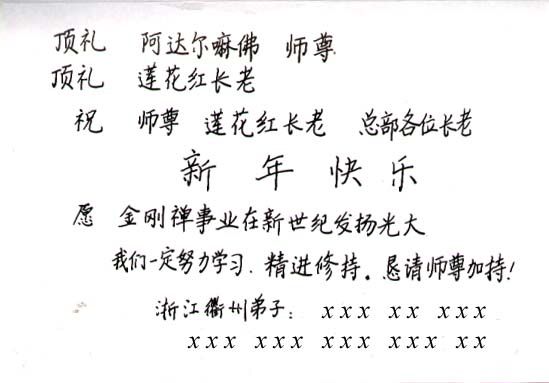 顶礼 阿达尔嘛佛 师尊
顶礼 莲花红长老
祝 师尊 莲花红长老 总部各位长老
新年快乐
愿 金刚禅事业在新世纪发扬光大
我们一定努力学习.精进修持。恳请师尊加持!
浙江衢州弟子: xxx xx xxx
xxx xxx xxx xxx xx